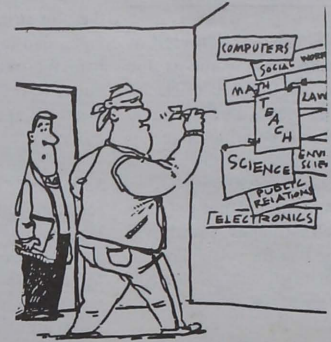 COMPUTERS
SOCIAL WORK
MATH
LAW
TEACH
SCIENCE
ENVI
SCIEN
PUBLIC
RELATIONS
ELECTRONICS